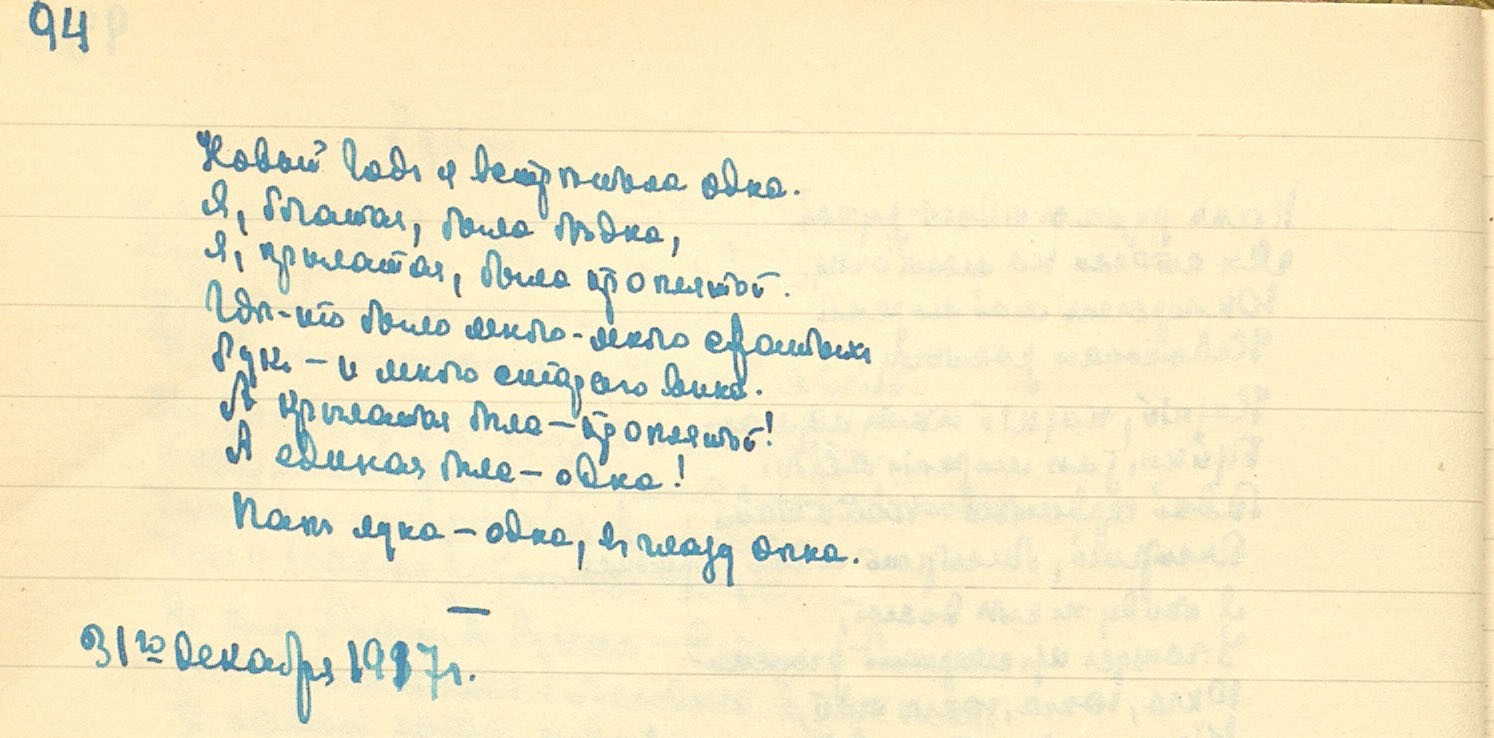 94
Новый годъ я встрѣтила одна.
Я, богатая, была бѣдна,
Я, крылатая, была проклятой.
Гдѣ-то было много-много сжатыхъ
Рукъ – и много стараго вина.
А крылатая была – проклятой!
А единая была – одна!
Какъ луна – одна, въ глазу окна.
—
31го декабря 1917г.